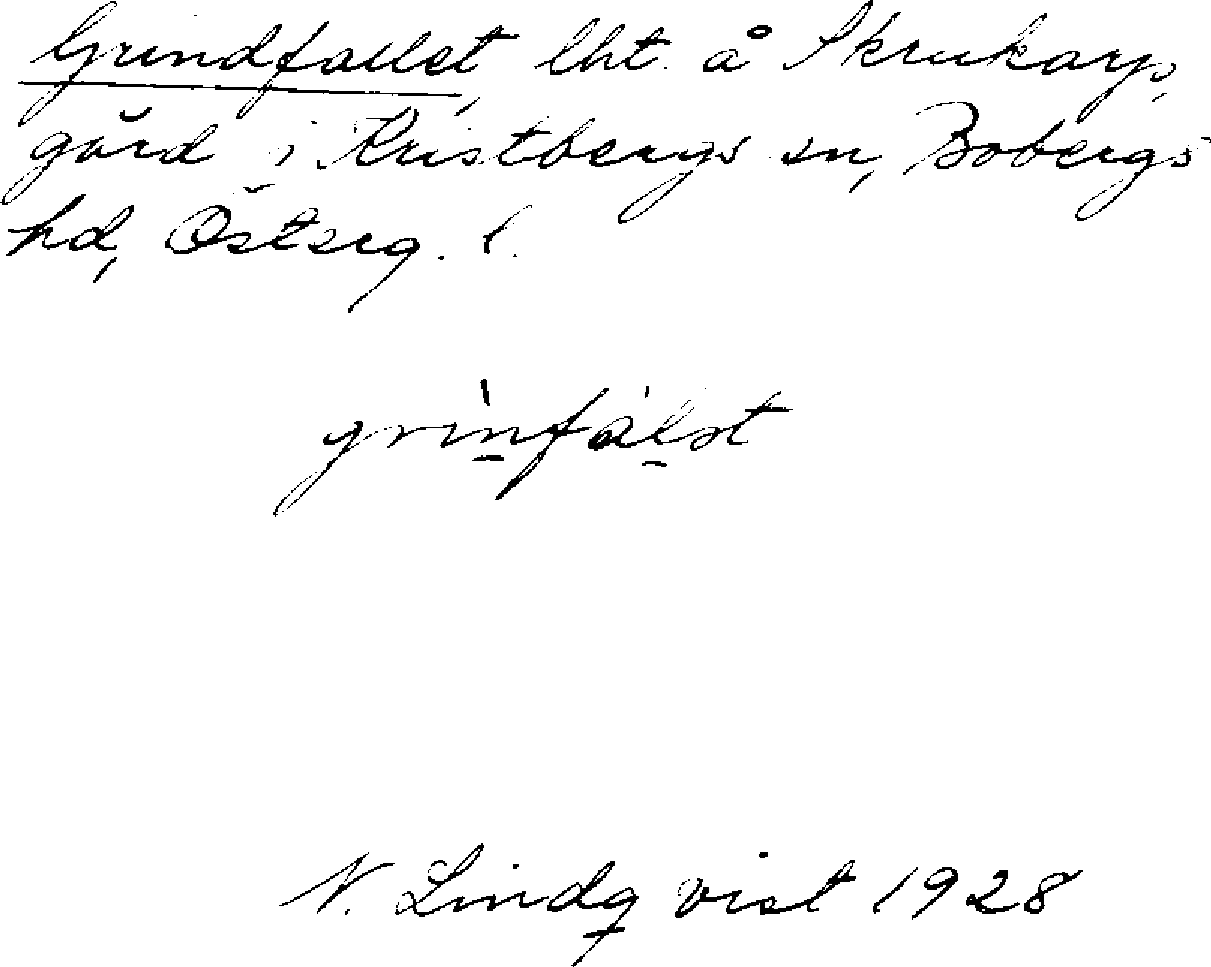 Grindfallet, lht. å Skrukarps
gård i Kristbergs sn, Bobergs
hd, Österg. l.
grìnfálət
N. Lindqvist 1928